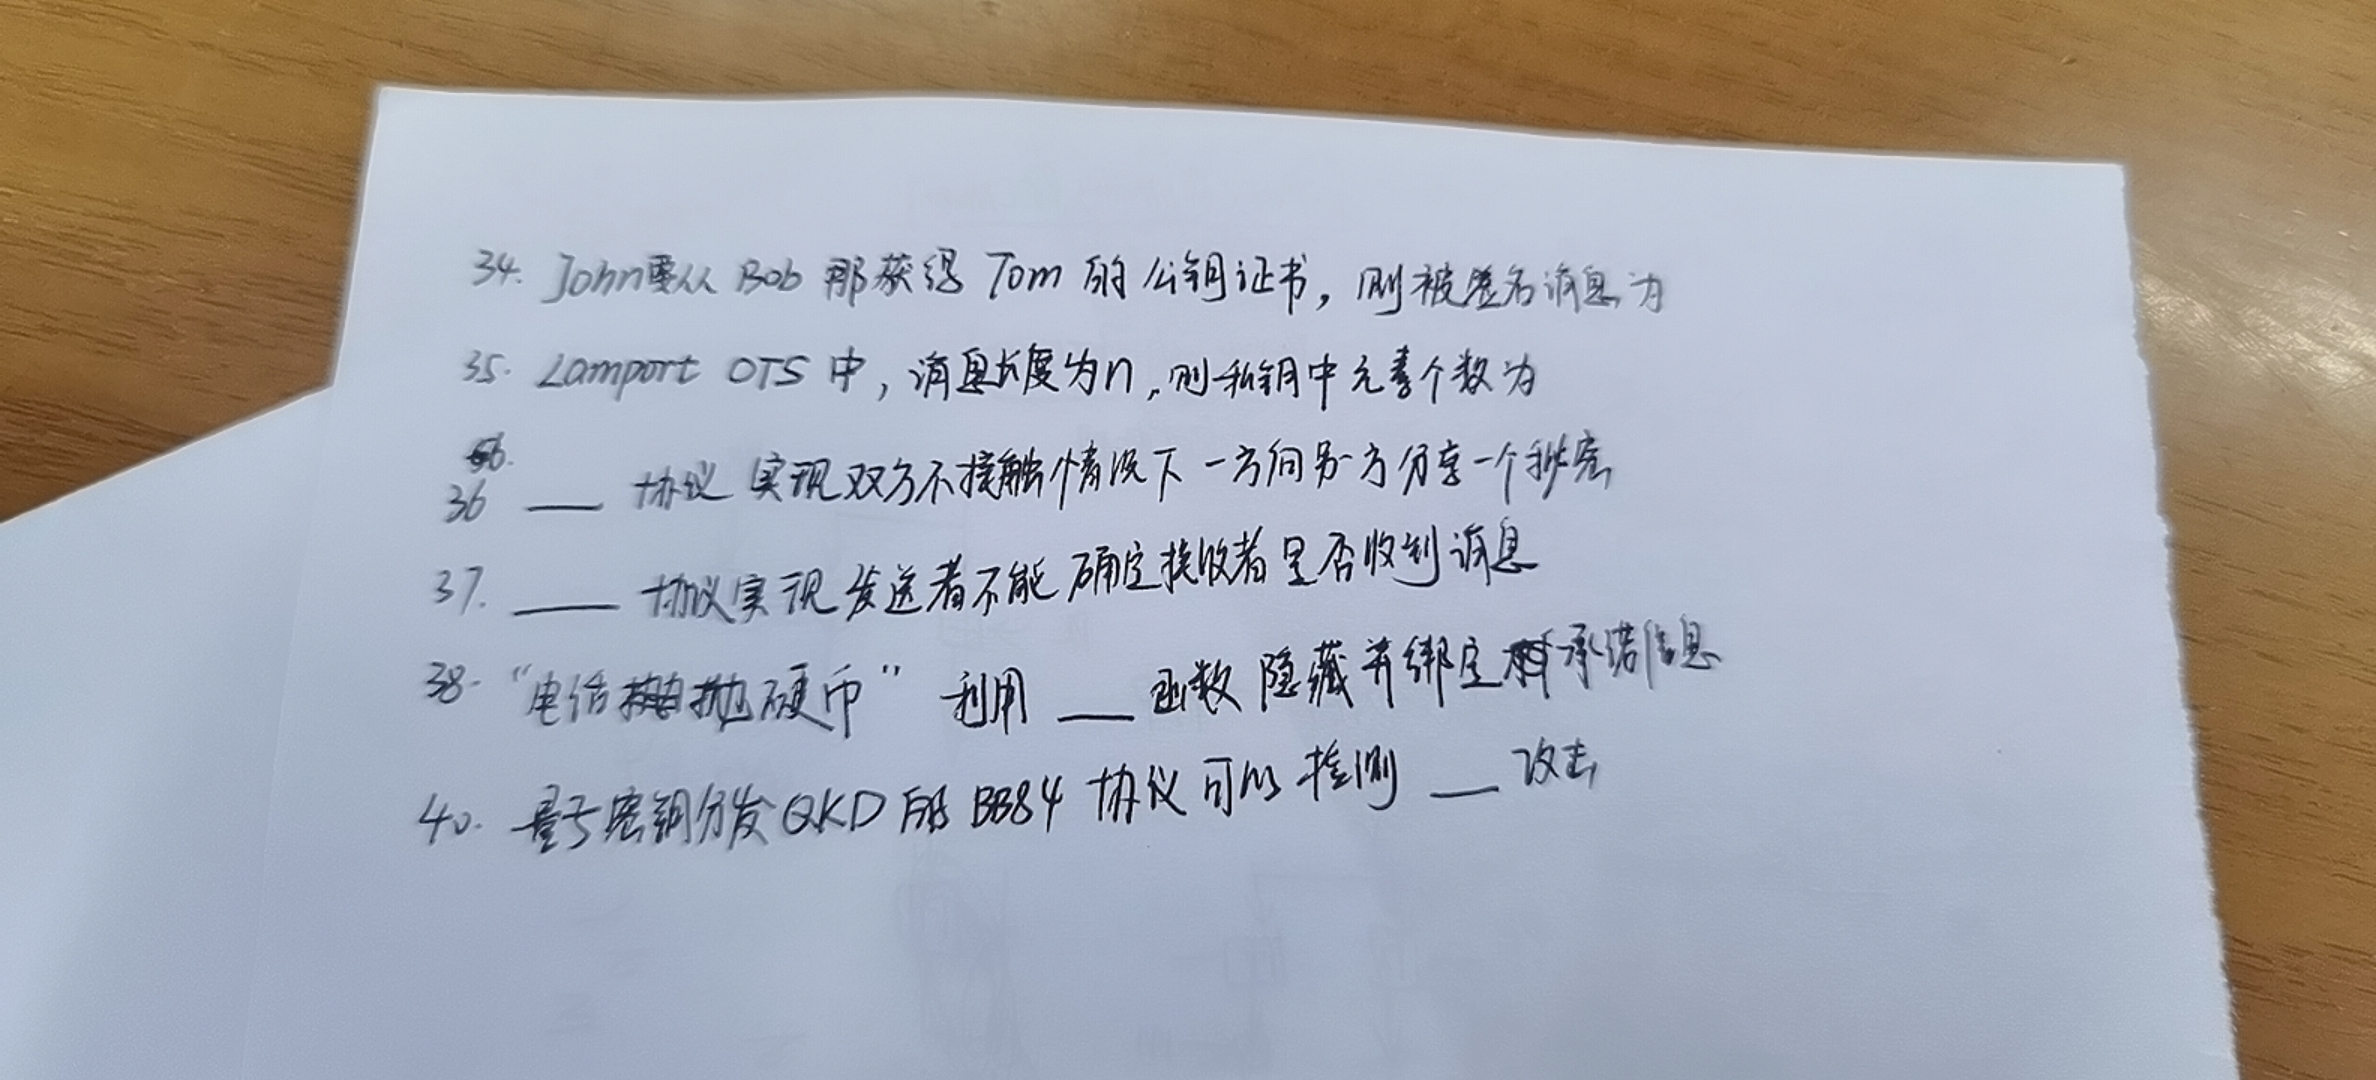 34. John要从 Bob 那获得 Tom 的公钥证书，则被签名消息为
35. Lamport OTS 中，消息长度为n，则私钥中元素个数为
36 ___ 协议 实现双方不接触情况下一方向另一方分享一个秘密
37. ___ 协议实现发送者不能确定接收者是否收到消息
38. “电话抛硬币” 利用 ___ 函数 隐藏并绑定承诺信息
40. 量子密钥分发QKD的BB84 协议可以检测 ___ 攻击